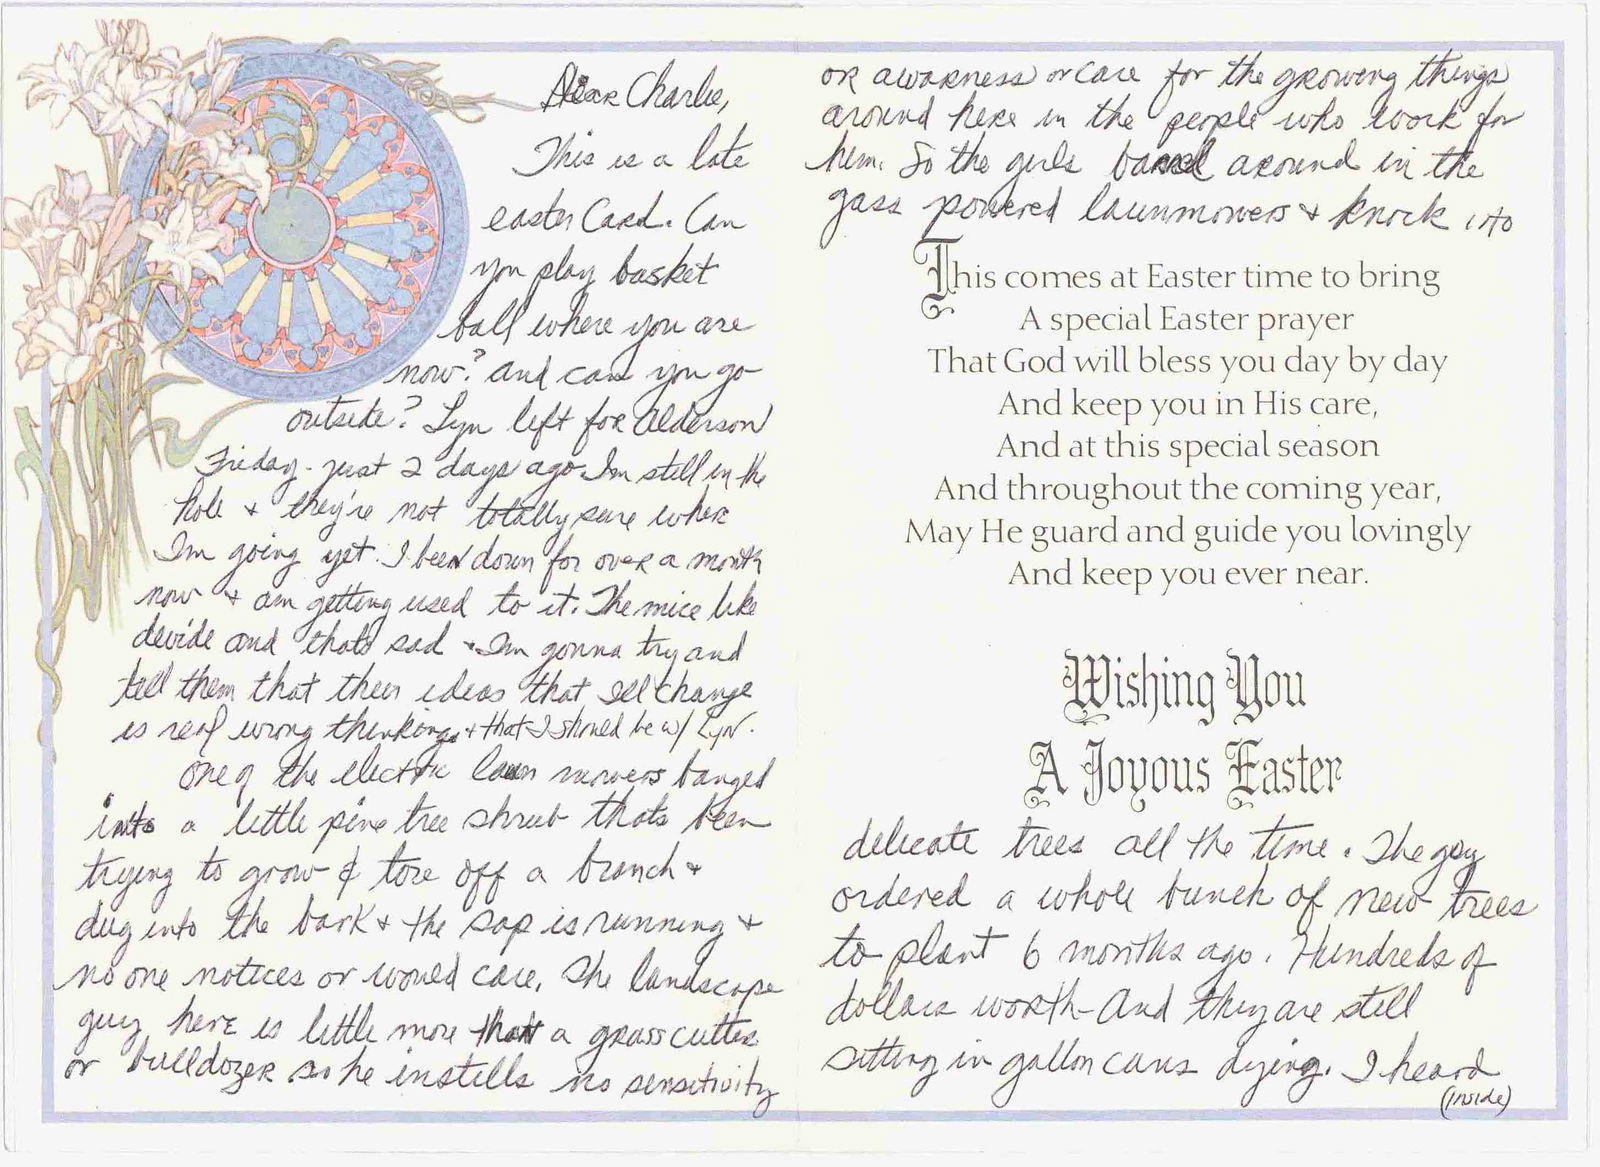 Dear Charlie,
This is a late
easter Card. Can
you play basket
ball where you are
now? and can you go
outside? Lyn left for Alderson
Friday - just 2 days ago. Im still in the
hole & they're not totally sure where
I'm going yet. I been down for over a month
now & am getting used to it. The mice like
devide and thats sad & Im gonna try and
tell them that their ideas that Ill change
is real wrong thinking & that I should be w/ Lyn.
One of the electric lawn mowers banged
into a little pine tree shrub thats been
trying to grow & tore off a branch &
dug into the bark & the sap is running &
no one notices or would care. The landscape
guy here is little more than a grass cutter
or bulldozer so he instills no sensitivity
or awarness or care for the growing things
around here in the people who work for
him. So the girls barrel around in the
gass powered lawnmowers & knock into
This comes at Easter time to bring
A special Easter prayer
That God will bless you day by day
And keep you in His care,
And at this special season
And throughout the coming year,
May He guard and guide you lovingly
And keep you ever near.
Wishing You
A Joyous Easter
delicate trees all the time. The guy
ordered a whole bunch of new trees
to plant 6 months ago. Hundreds of
dollars worth - And they are still
sitting in gallon cans dying. I heard
(inside)